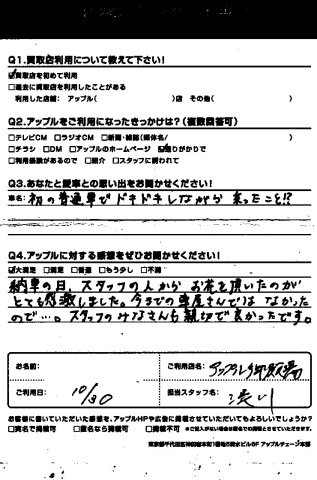 Q1.買取店利用について教えて下さい!
☑買取店を初めて利用
□過去に買取店を利用したことがある
利用した店舗: アップル( )店 その他( )
Q2.アップルをご利用になったきっかけは?(複数回答可)
□テレビCM □ラジオCM □新聞・雑誌(媒体名/ )
□チラシ □DM □アップルのホームページ ☑通りがかりで
□利用経験があるので □紹介 □スタッフに誘われて
Q3.あなたと愛車との思い出をお聞かせください!
車名: 初の普通車でドキドキしながら乗ったこと!?
Q4.アップルに対する感想をぜひお聞かせください!
☑大満足 □満足 □普通 □もう少し □不満
納車の日、スタッフの人からお花を頂いたのが
とても感激しました。今までの車屋さんでは なかった
ので…。スタッフのみなさんも親切で良かったです。
お名前:
ご利用店名: アップル
ご利用日: 10/30
担当スタッフ名:
お客様に書いていただいた感想を、アップルHPや広告に掲載させていただいてもよろしいでしょうか?
□実名で掲載可 □匿名なら掲載可 □掲載不可 ※ご記入がない場合は匿名での掲載とさせていただきます。
アップルチェーン本部